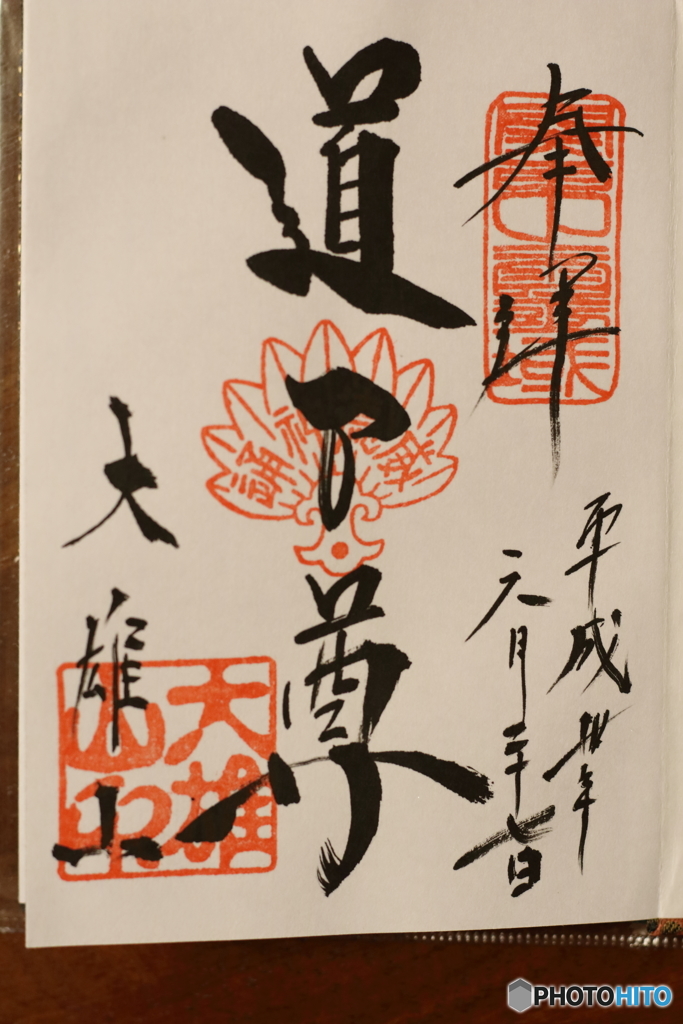 奉拝
平成卅年
六月二十七日
道了尊
大雄山
大雄
山印
PHOTOHITO